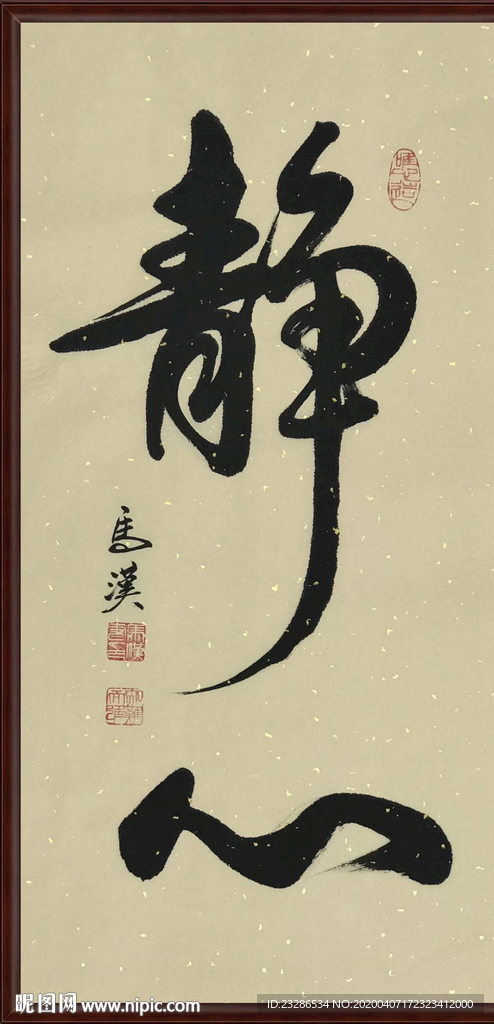 静心
馬漢
昵图网 www.nipic.com
ID:23286534 NO:20200407172323412000